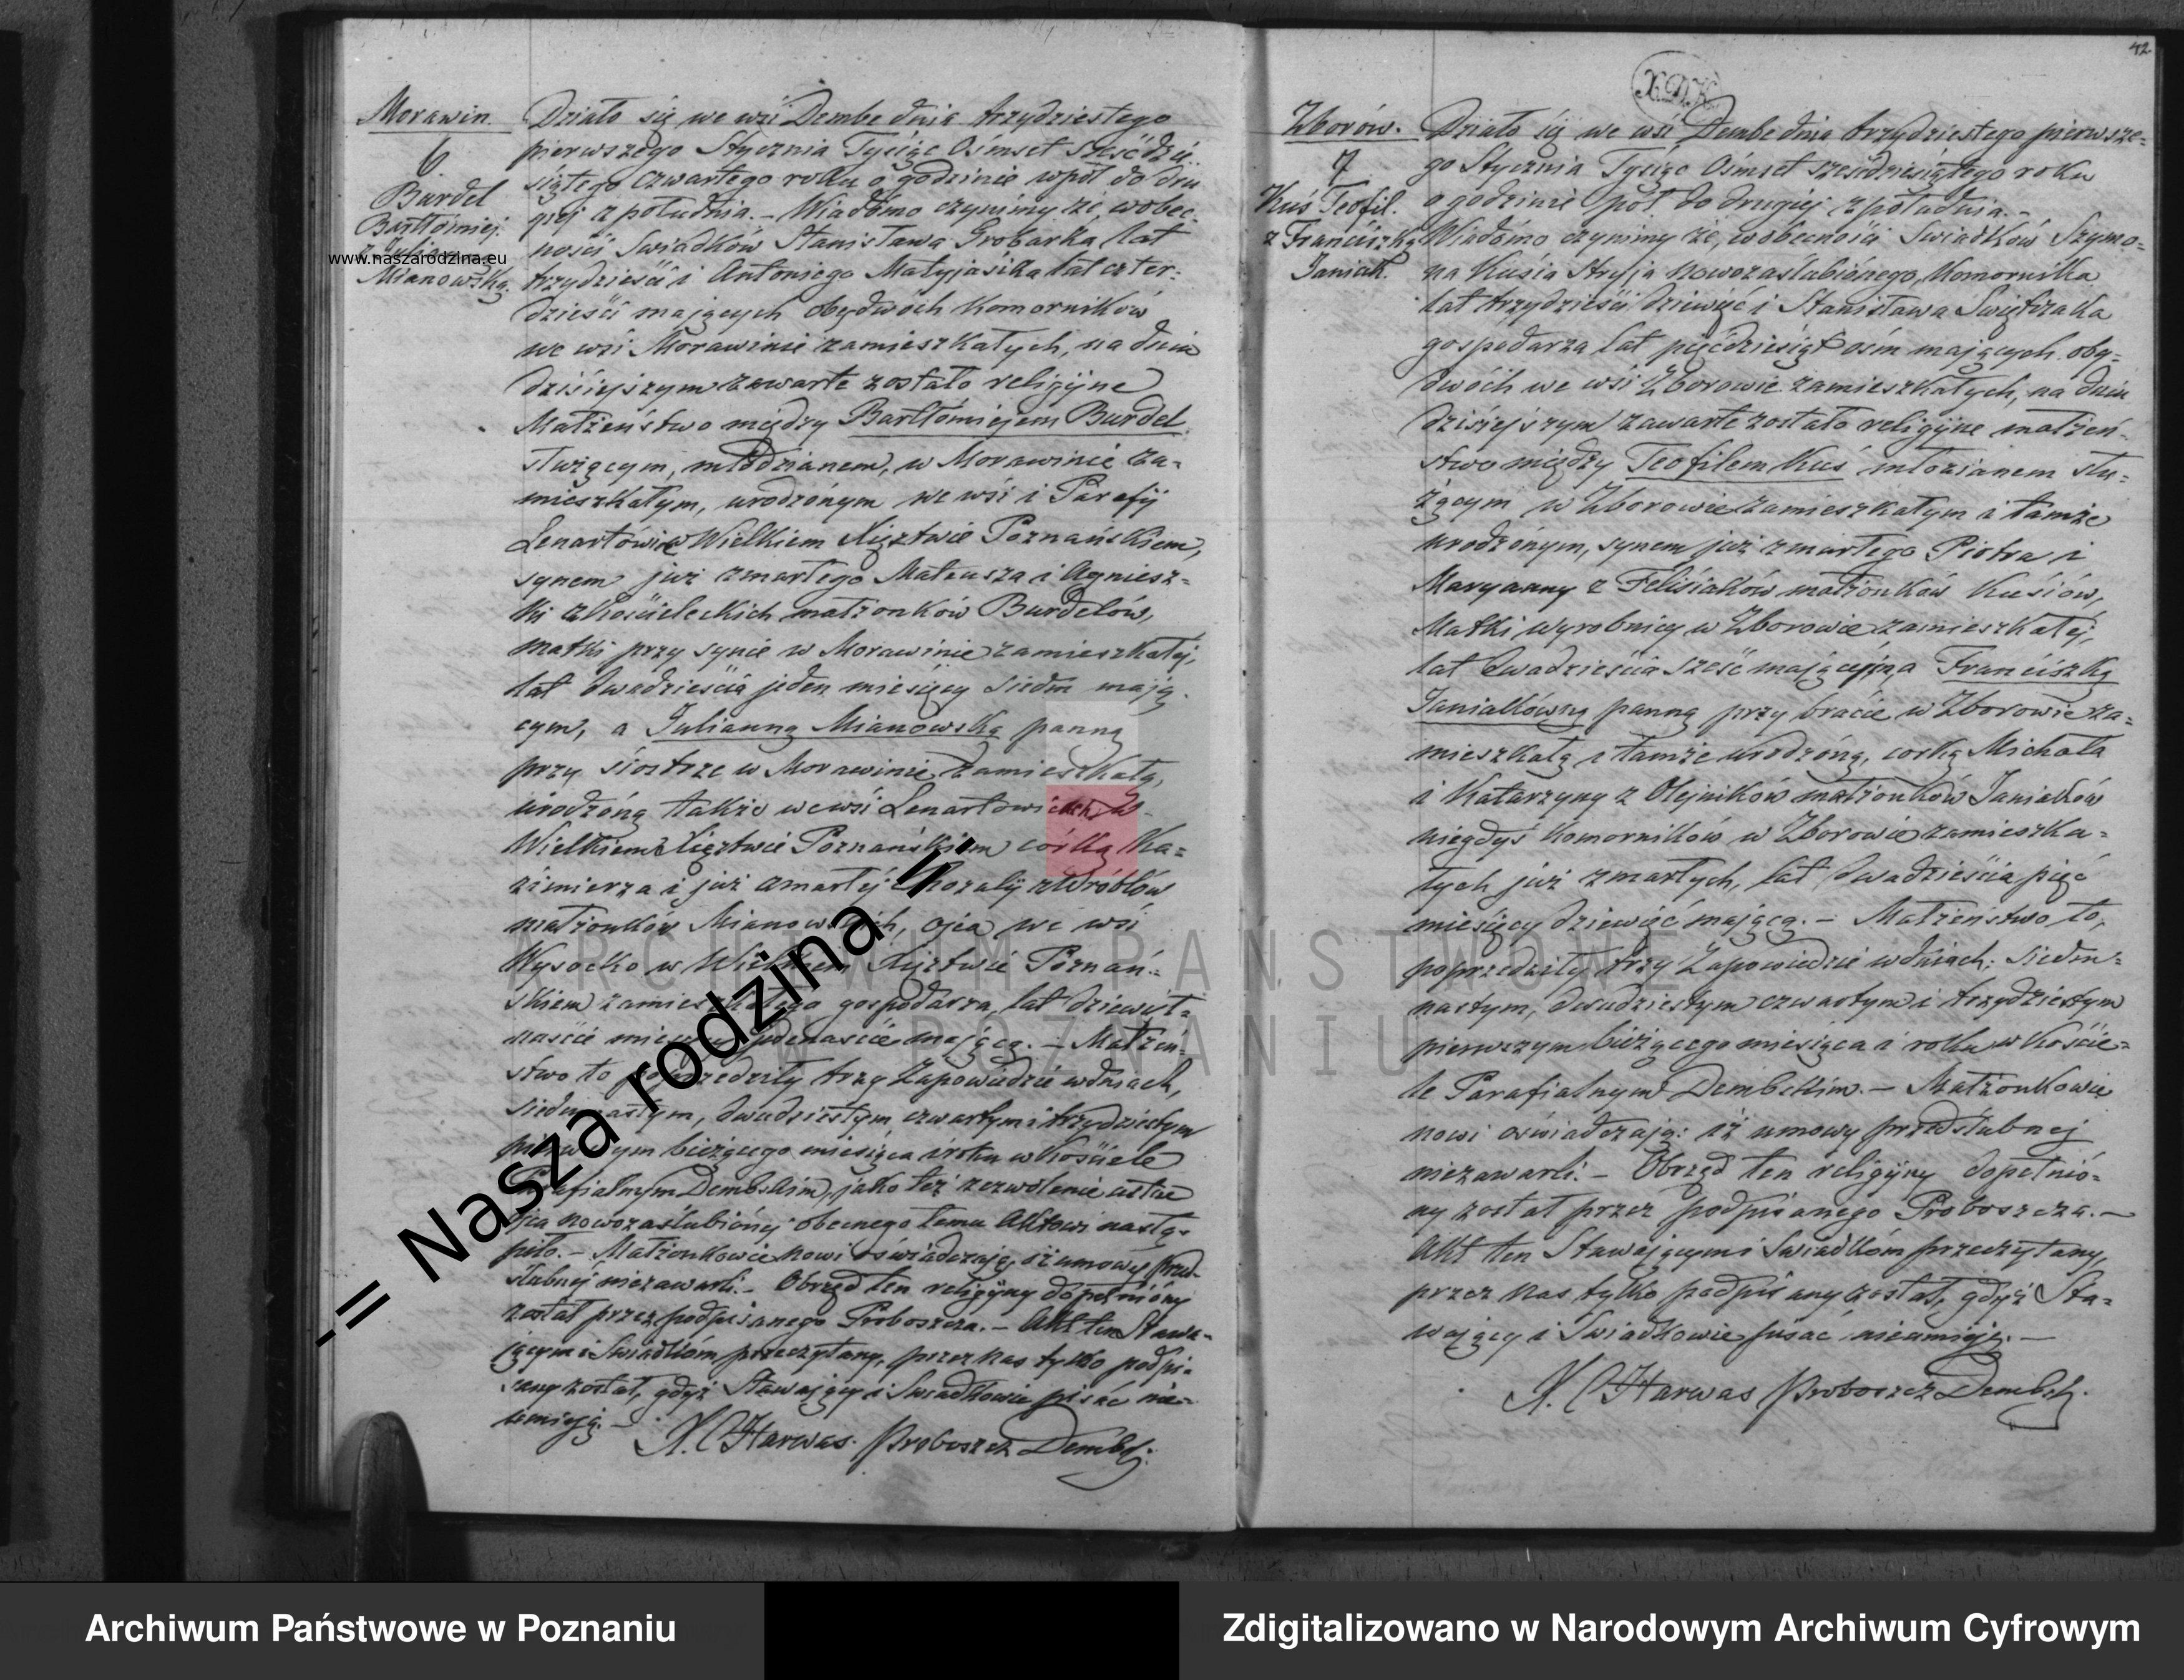 Morawin.
6
Burdel
Bartłómiej.
z Julianną
Mianowską.
Działo się we wsi Dembe dnia trzydziestego
pierwszego Stycznia Tysiąc Ośmset sześćdzie-
siątego czwartego roku o godzinie wpół do dru
giej z południa. – Wiadomo czynimy że, wobec-
ności Swiadków Stanisława Grobarka lat
trzydzieści i Antoniego Matyjasika lat czter-
dzieści mających obydwóch Komorników
we wsi Morawinie zamieszkałych, na dniu
dzisiejszym zawarte zostało religijne
Małżeństwo między Bartłómiejem Burdel
służącym, młodzianem, w Morawinie za-
mieszkałym, urodzónym we wsi i Parafij
Lenartówic w Wielkiem Xięztwie Poznańskiem,
synem już zmarłego Mateusza i Agniesz-
ki z Kościeleckich małżonków Burdelów,
matki przy synie w Morawinie zamieszkałej,
lat dwadzieścia jeden miesięcy siedm mają-
cym, a Julianną Mianowską panną
przy siostrze w Morawinie zamieszkałą,
urodzóną także we wsi Lenartowicach, w
Wielkiem Xięztwie Poznańskiem córką Ka-
zimierza i już zmarłéj Rozalij z Wróblów
małżonków Mianowskich, ojca we wsi
Wysocko w Wielkiem Xięztwie Poznań-
skiem zamieszkałego gospodarza, lat dziewięt-
naście miesięcy jedenaście mającą. – Małżeń-
stwo to poprzedziły trzy Zapowiedzie w dniach,
siedmnastym, dwudziestym czwartym i trzydziestym
pierwszym bieżącego miesiąca i roku w Kościele
Parafialnym Dembskim, jako też zezwolenie ustne
ojca nowozaślubionej obecnego temu Aktowi nastą-
piło. – Małżonkowie nowi oświadczają, iż umowy przed-
ślubnéj niezawarli. – Obrzęd ten religijny dopełniony
został przez podpisanego Proboszcza. – Akt ten Stawa-
jącym i Swiadkóm przeczytany, przez nas tylko podpi-
sany został, gdyż Stawający i Swiadkowie pisać nie-
umieją. –
X. C Harwas. Proboszcz Dembs:
42
X.D.K.
Zborów.
7
Kuś Teofil.
z Franciszką
Janiak.
Działo się we wsi Dembe dnia trzydziestego pierwsze-
go Stycznia Tysiąc Ośmset sześćdziesiątego roku
o godzinie pół do drugiej z południa. –
Wiadomo czynimy że, wobecności Swiadków Szymo-
na Kusia stryja nowozaślubiónego, Komornika
lat trzydzieści dziewięć i Stanisława Swiętczaka
gospodarza lat pięćdziesiąt ośm mających oby-
dwóch we wsi Zborowie zamieszkałych, na dniu
dzisiejszym zawarte zostało religijne małżeń-
stwo między Teofilem Kuś młodzianem słu-
żącym w Zborowie zamieszkałym i tamże
urodzónym, synem już zmarłego Piotra i
Maryanny z Felisiaków małżonków Kusiów,
Matki wyrobnicy w Zborowie zamieszkałéj,
lat dwadzieścia sześć mającym a Franciszką
Janiakówną panną przy bracie w Zborowie za-
mieszkałą i tamże urodzóną, córką Michała
i Katarzyny z Olejników małżonków Janiaków
niegdyś Komorników w Zborowie zamieszka-
łych już zmarłych, lat dwadzieścia pięć
miesięcy dziewięć mającą. – Małżeństwo to,
poprzedziły trzy Zapowiedzie w dniach: siedm-
nastym, dwudziestym czwartym i trzydziestym
pierwszym bieżącego miesiąca i roku w Koście-
le Parafialnym Dembskim. – Małżonkowie
nowi oświadczają: iż umowy przedślubnej
niezawarli. – Obrzęd ten religijny dopełnió-
ny został przez podpisanego Proboszcza. –
Akt ten Stawającym i Swiadkóm przeczytany,
przez nas tylko podpisany został, gdyż Sta-
wający i Swiadkowie pisać nieumieją. –
X. C Harwas Proboszcz Dembs.
www.naszarodzina.eu
-= Nasza rodzina =-
ARCHIWUM PAŃSTWOWE
W POZNANIU
Archiwum Państwowe w Poznaniu
Zdigitalizowano w Narodowym Archiwum Cyfrowym